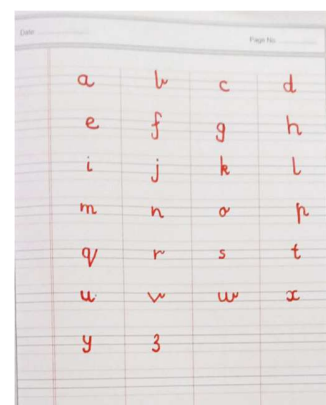 Date
Page No.
a b c d
e f g h
i j k l
m n o p
q r s t
u v w x
y z